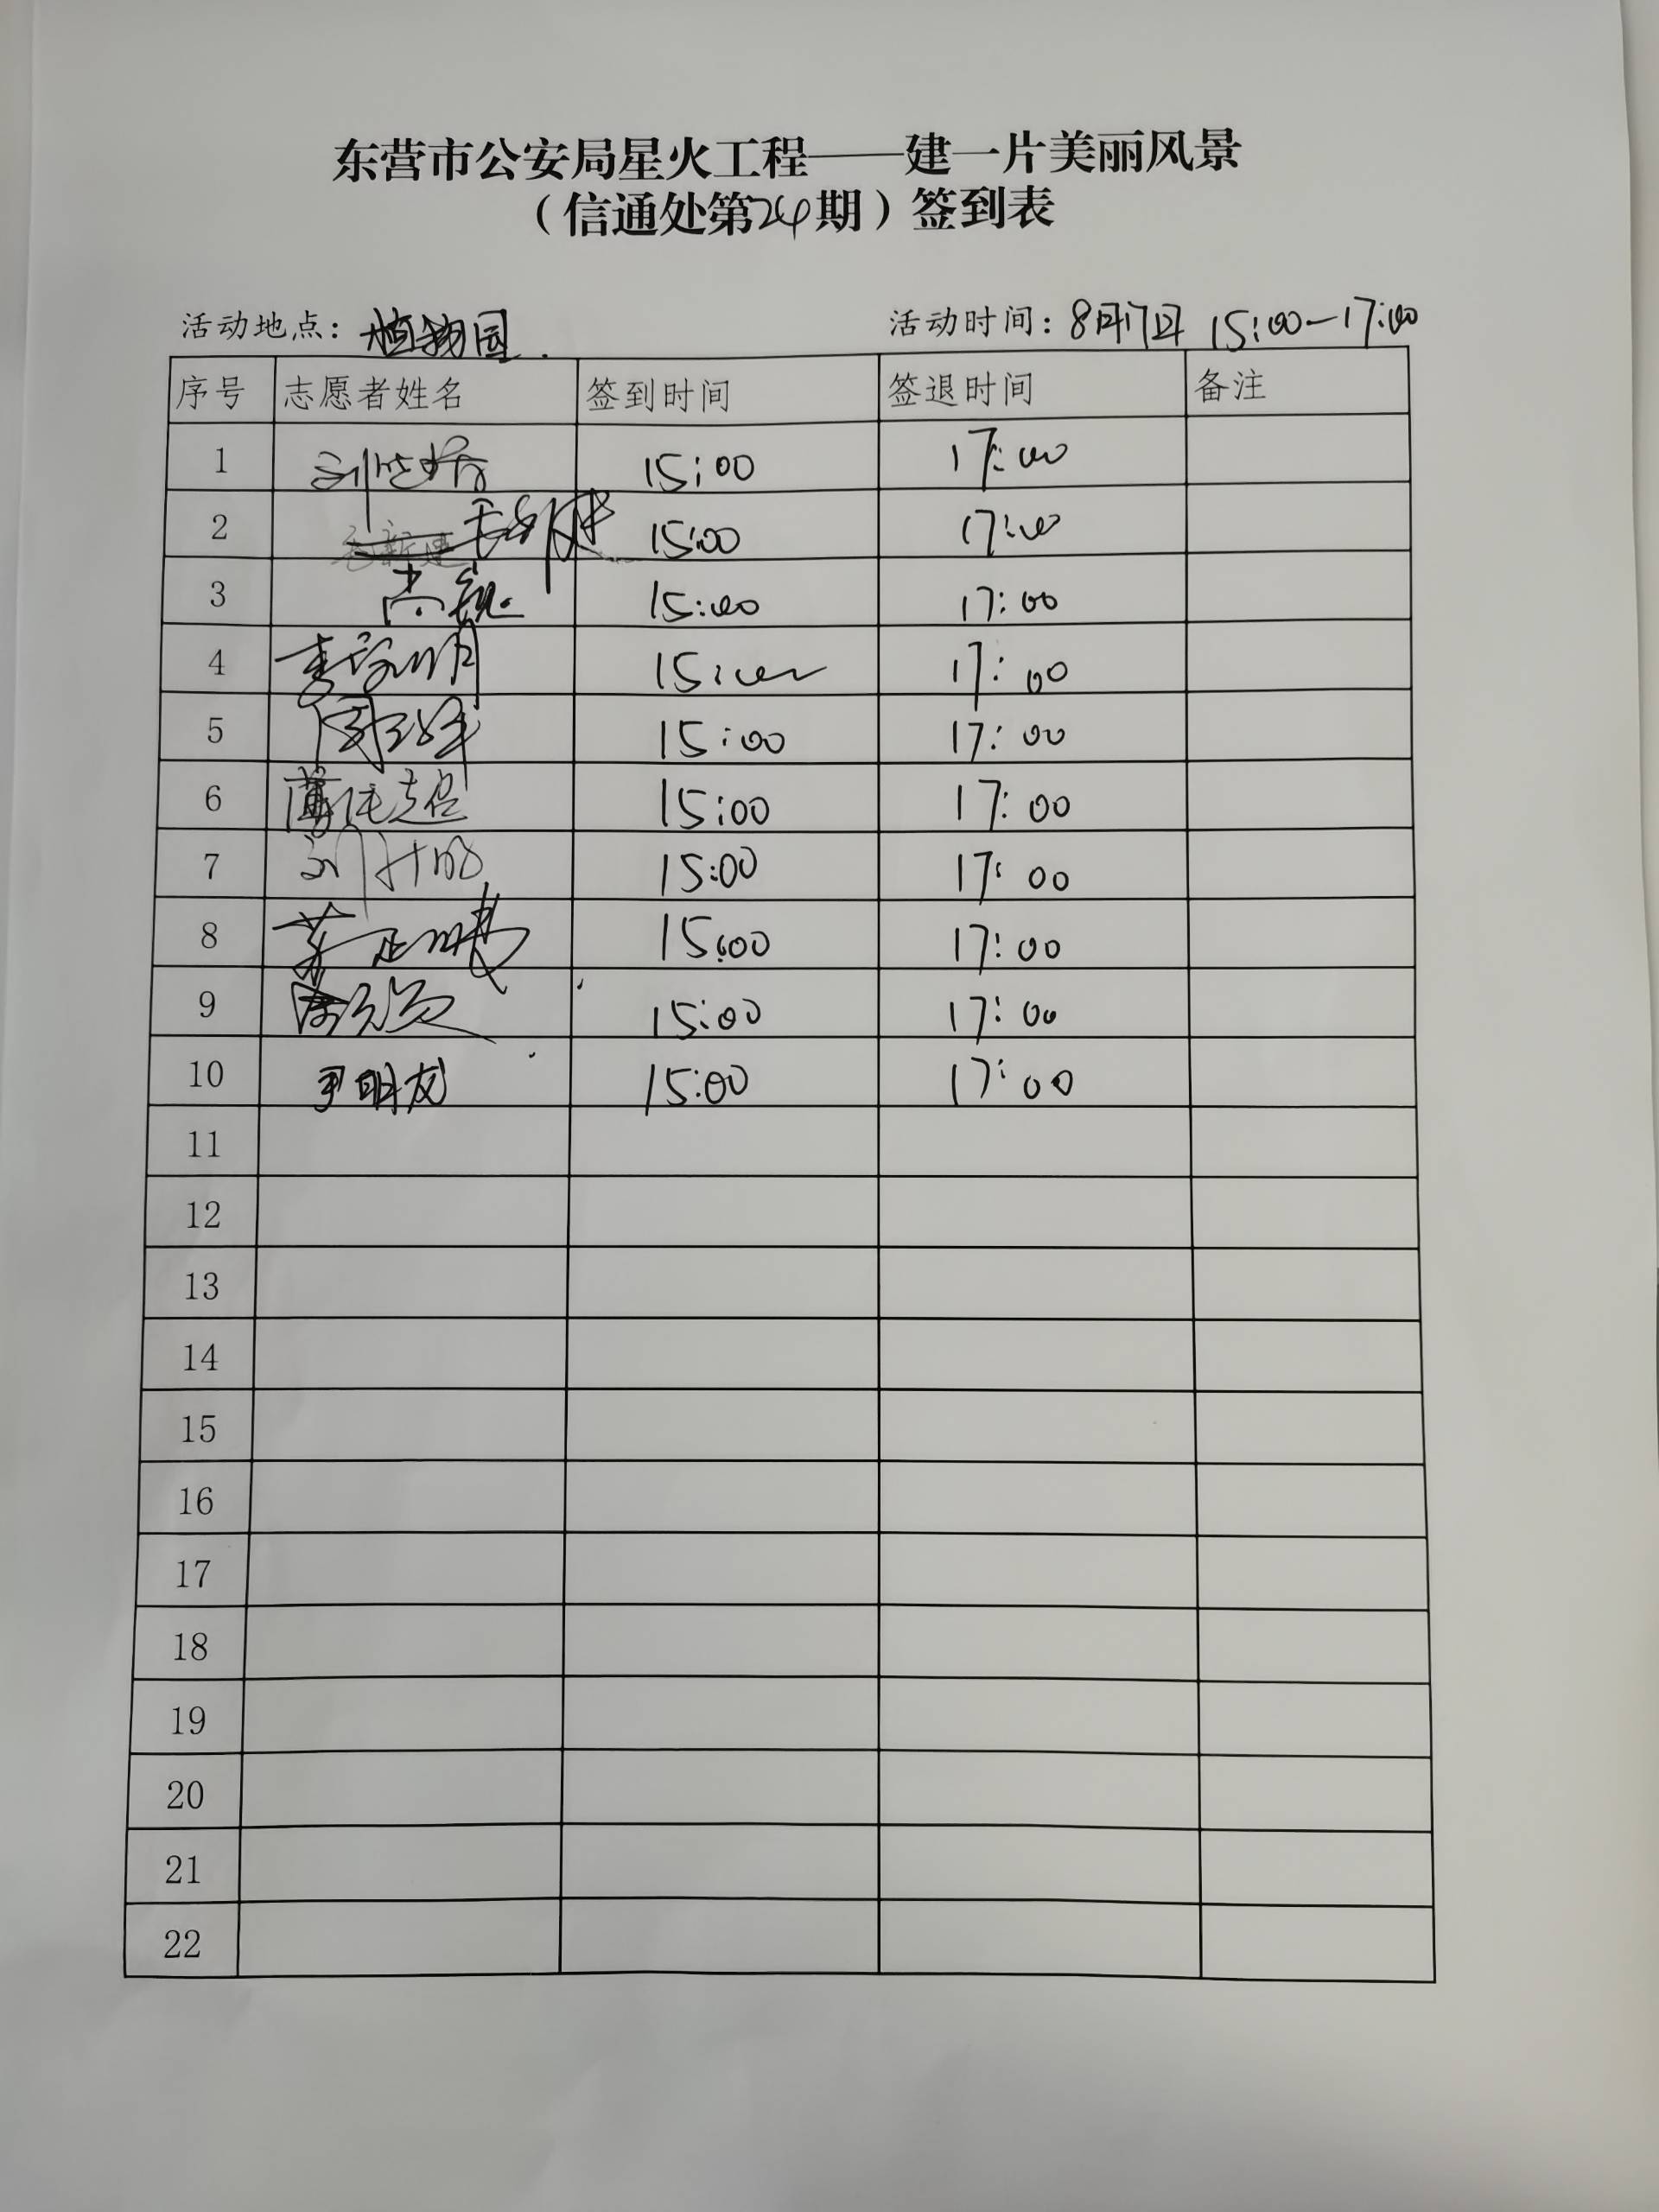 东营市公安局星火工程——建一片美丽风景
（信通处第24期）签到表
活动地点：植物园. 活动时间：8月17日 15:00-17:00
序号 志愿者姓名 签到时间 签退时间 备注
1 15:00 17:00
2 15:00 17:00
3 15:00 17:00
4 15:00 17:00
5 15:00 17:00
6 薄纯超 15:00 17:00
7 15:00 17:00
8 15:00 17:00
9 15:00 17:00
10 尹明友 15:00 17:00
11
12
13
14
15
16
17
18
19
20
21
22